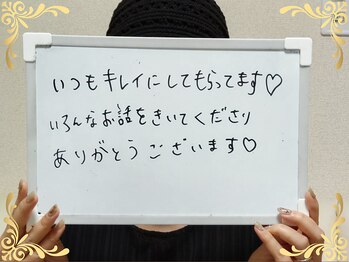 いつもキレイにしてもらってます♡
いろんなお話をきいてくださり
ありがとうございます♡